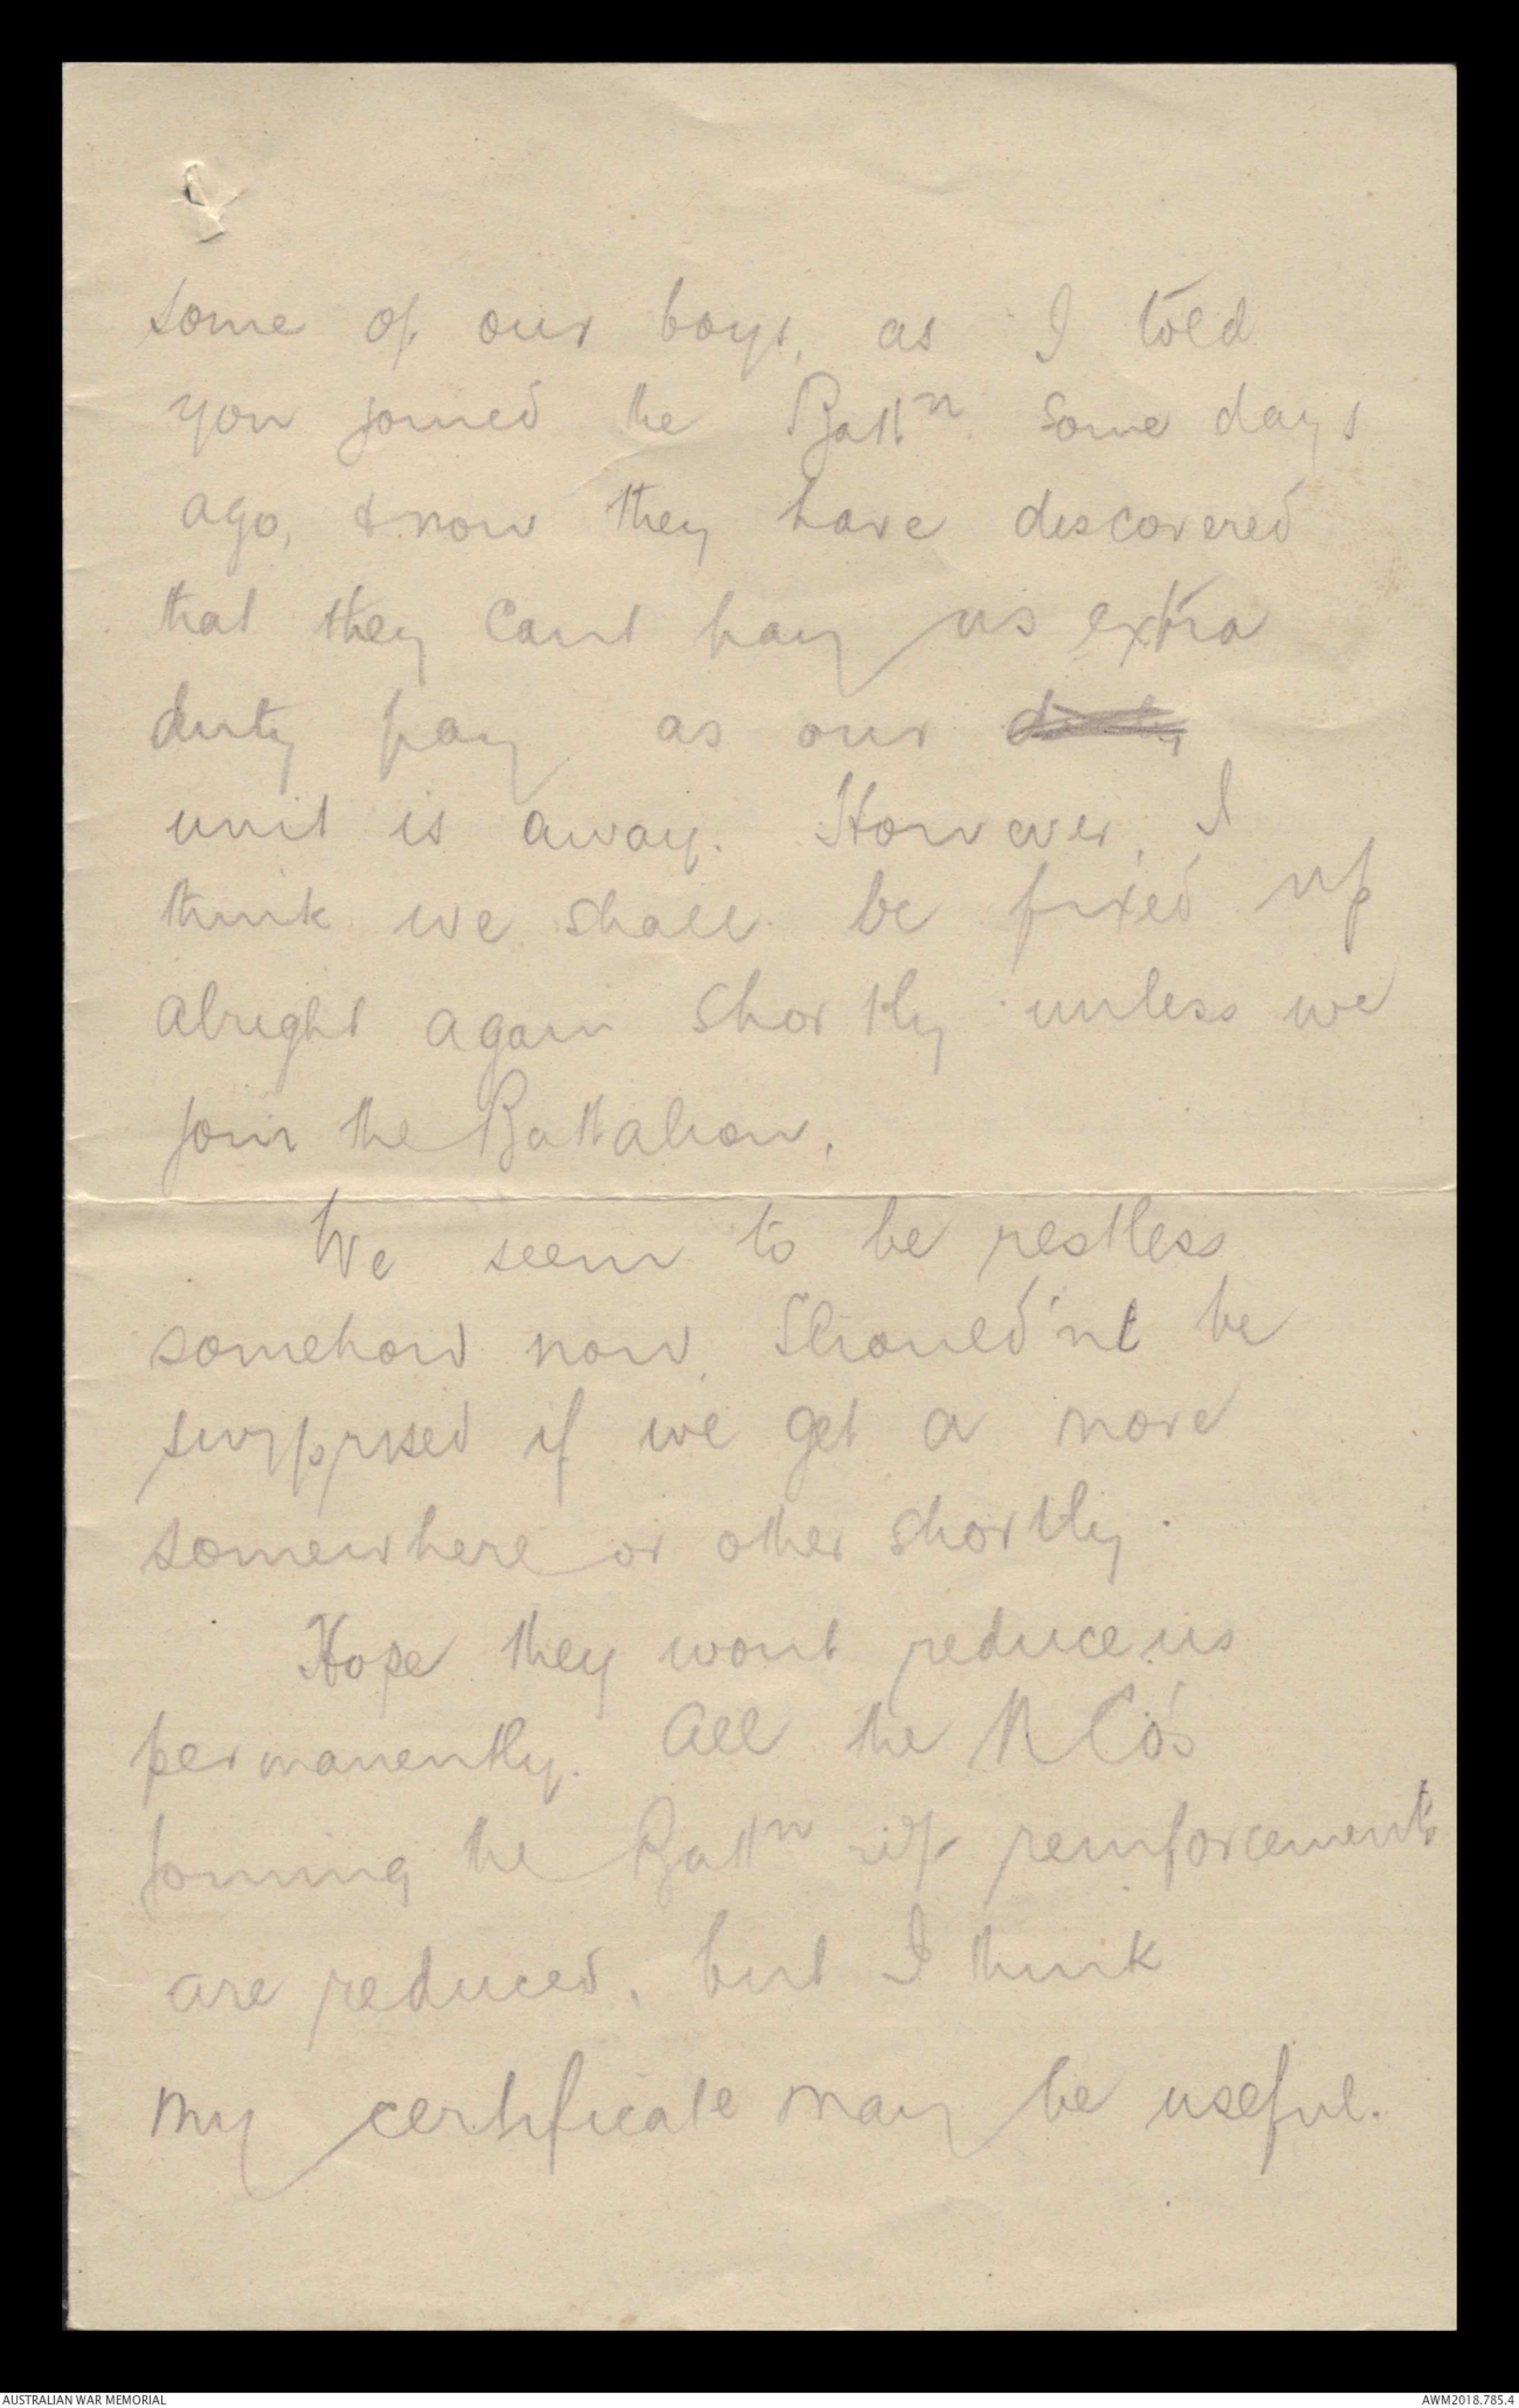 some of our boys, as I told
you joined the Battn. some days
ago, & now they have discovered
that they cant pay us extra
duty pay as our duty
unit is away. However, I
think we shall be fixed up
alright again shortly unless we
join the Battalion.
We seem to be restless
somehow now. Should'nt be
surprised if we get a move
somewhere or other shortly.
Hope they wont reduce us
permanently. All the NCO's
joining the Battn in reinforcements
are reduced, but I think
my certificate may be useful.
AUSTRALIAN WAR MEMORIAL
AWM2018.785.4